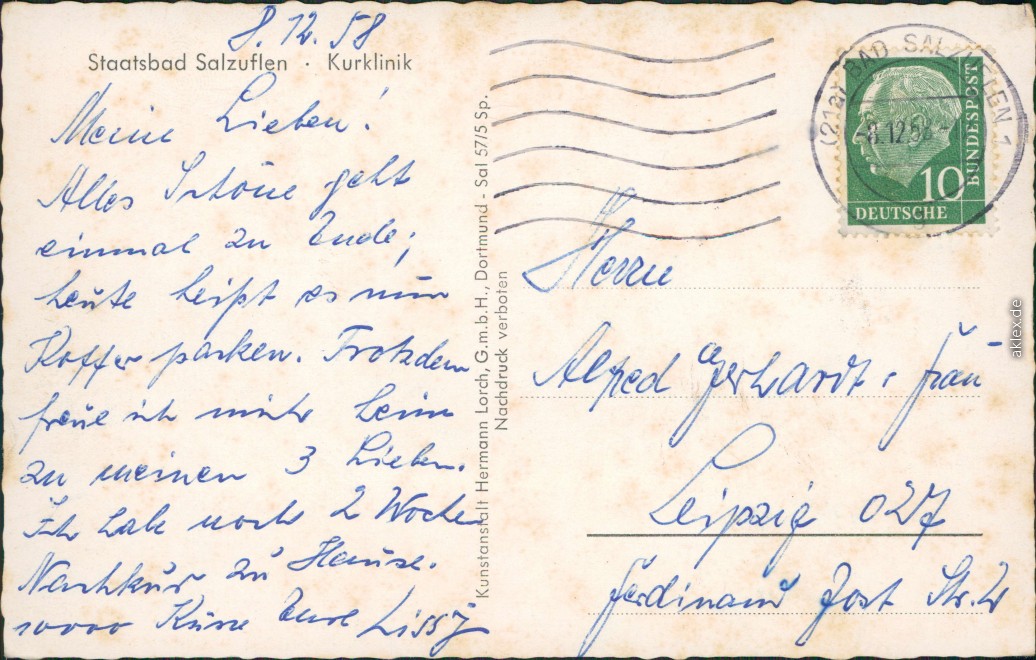 8.12.58
Staatsbad Salzuflen · Kurklinik
Meine Lieben!
Alles Schöne geht
einmal zu Ende;
heute heißt es nun
Koffer packen. Trotzdem
freue ich mich heim
zu meinen 3 Lieben.
Ich habe noch 2 Wochen
Nachkur zu Hause.
10000 Küsse Eure Lissy
Kunstanstalt Hermann Lorch, G.m.b.H., Dortmund - Sal 57/5 Sp.
Nachdruck verboten
(21a) BAD SALZUFLEN 1
-8.12.58-
10
DEUTSCHE
BUNDESPOST
Herrn
Alfred Gerhardt u. Frau
Leipzig O27
Ferdinand Jost Str.
aklex.de